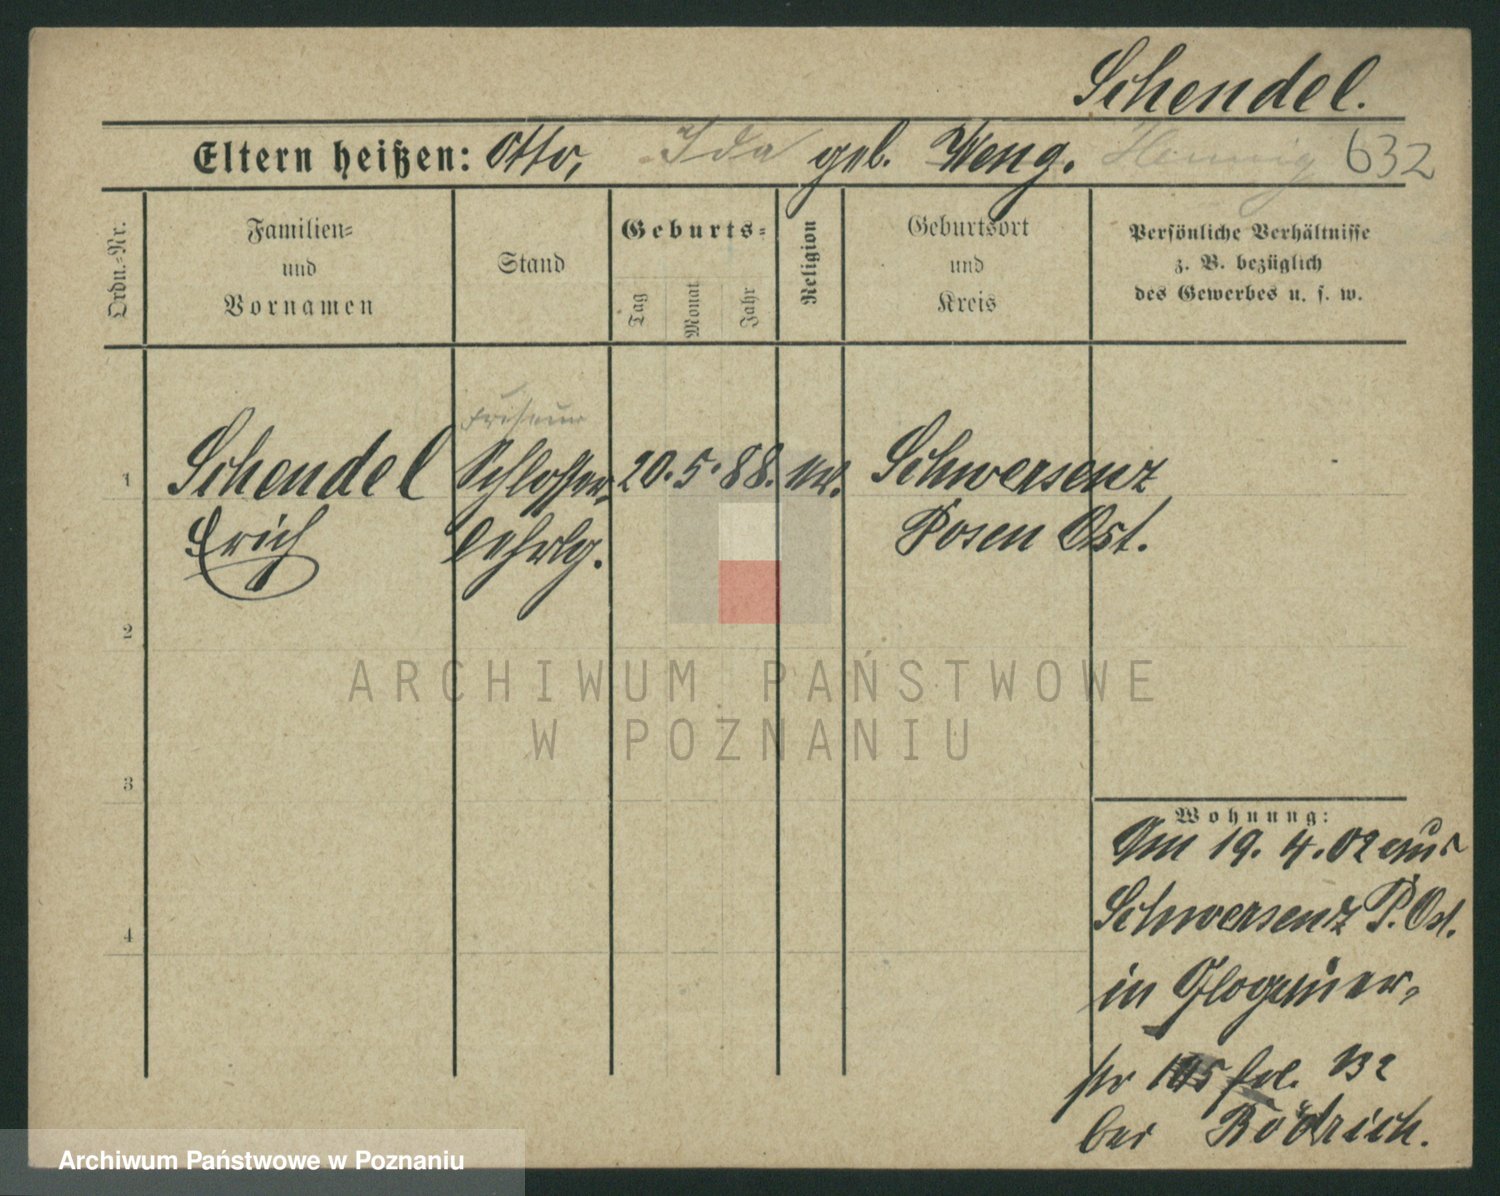 Schendel.
Eltern heißen: Otto, Ida geb. Weng. Hennig 632
Ordn.-Nr.
Familien-
und
Vornamen
Stand
Geburts-
Tag
Monat
Jahr
Religion
Geburtsort
und
Kreis
Persönliche Verhältnisse
z. B. bezüglich
des Gewerbes u. s. w.
Friseur
1 Schendel Schlosser- 20. 5. 88. Schwersenz
Erich Lehrlg. Posen Ost.
2
3
4
ARCHIWUM PAŃSTWOWE
W POZNANIU
Wohnung:
Am 19. 4. 02 aus
Schwersenz P. Ost.
in Glogauer-
str
bei Rödrich.
Archiwum Państwowe w Poznaniu